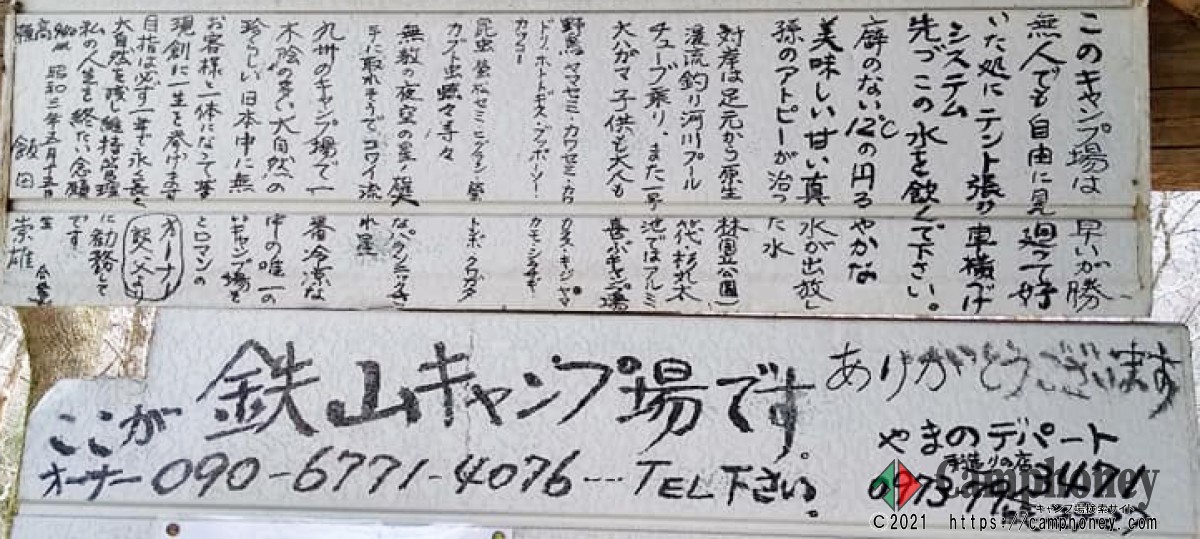 このキャンプ場は 早いが勝
無人でも自由に見 廻って好
いた処にテント張り 車横げ
システム
先づこの水を飲んで下さい。
癖のない12℃の円るやかな
美味しい甘い真 水が出放し
孫のアトピーが治った水
対岸は足元から原生 林(国立公園)
渓流釣り河川プール 筏 杉丸太
チューブ乗り、また一号 池ではアルミ
大ガマ 子供も大人も 喜ぶキャンプ場
野鳥 ヤマセミ・カワセミ・カワ カラス・キジ・ヤマ
ドリ・ホトトギス・ブッポーソー カモ・シラサギ
カッコー
昆虫 螢 松セミ・ヒグラシ・螢 トンボ・クワガタ
カブト虫 蝶々 等々
無数の夜空の星 雄大 なパノラミック
手に取れそうで コワイ流れ星
九州のキャンプ場で一番 冷涼な
木陰の多い大自然の 中の唯一の
珍らしい日本中に無 いキャンプ場を
お客様と一体になって夢 とロマンの
現創に一生を捧げます オーナー
目指は必ず一年で永く長く
大自然を残し維持管理 に勤務して
私の人生を終たい念願 です
標高900m 昭和三年五月十五日 生
飯田 崇雄
ありがとうございます
ここが 鉄山キャンプ場です。
やまのデパート
手造りの店
オーナー 090-6771-4076…TEL下さい。
0973-79-3471
Camphoney
キャンプ場検索サイト
©2021 https://camphoney.com